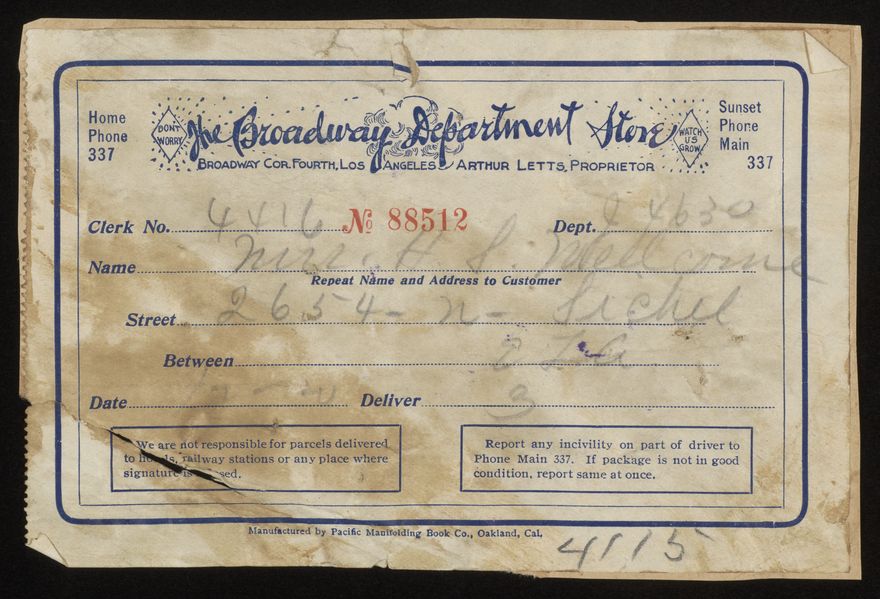 Home Phone 337
DON'T WORRY
The Broadway Department Store
WATCH US GROW
Sunset Phone Main 337
BROADWAY COR. FOURTH, LOS ANGELES ARTHUR LETTS, PROPRIETOR
Clerk No. 4416 № 88512 Dept. 4630
Name H. S.
Repeat Name and Address to Customer
Street 2654 - N - Sichel
Between
Date Deliver 3
We are not responsible for parcels delivered
to railway stations or any place where
signature is
Report any incivility on part of driver to
Phone Main 337. If package is not in good
condition, report same at once.
Manufactured by Pacific Manifolding Book Co., Oakland, Cal.
4115